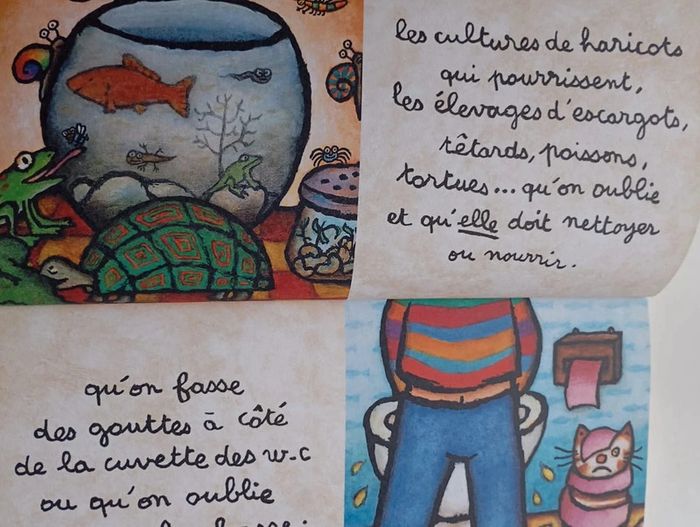 les cultures de haricots
qui pourrissent,
les élevages d'escargots,
têtards, poissons,
tortues... qu'on oublie
et qu'elle doit nettoyer
ou nourrir.
qu'on fasse
des gouttes à côté
de la cuvette des w-c
ou qu'on oublie